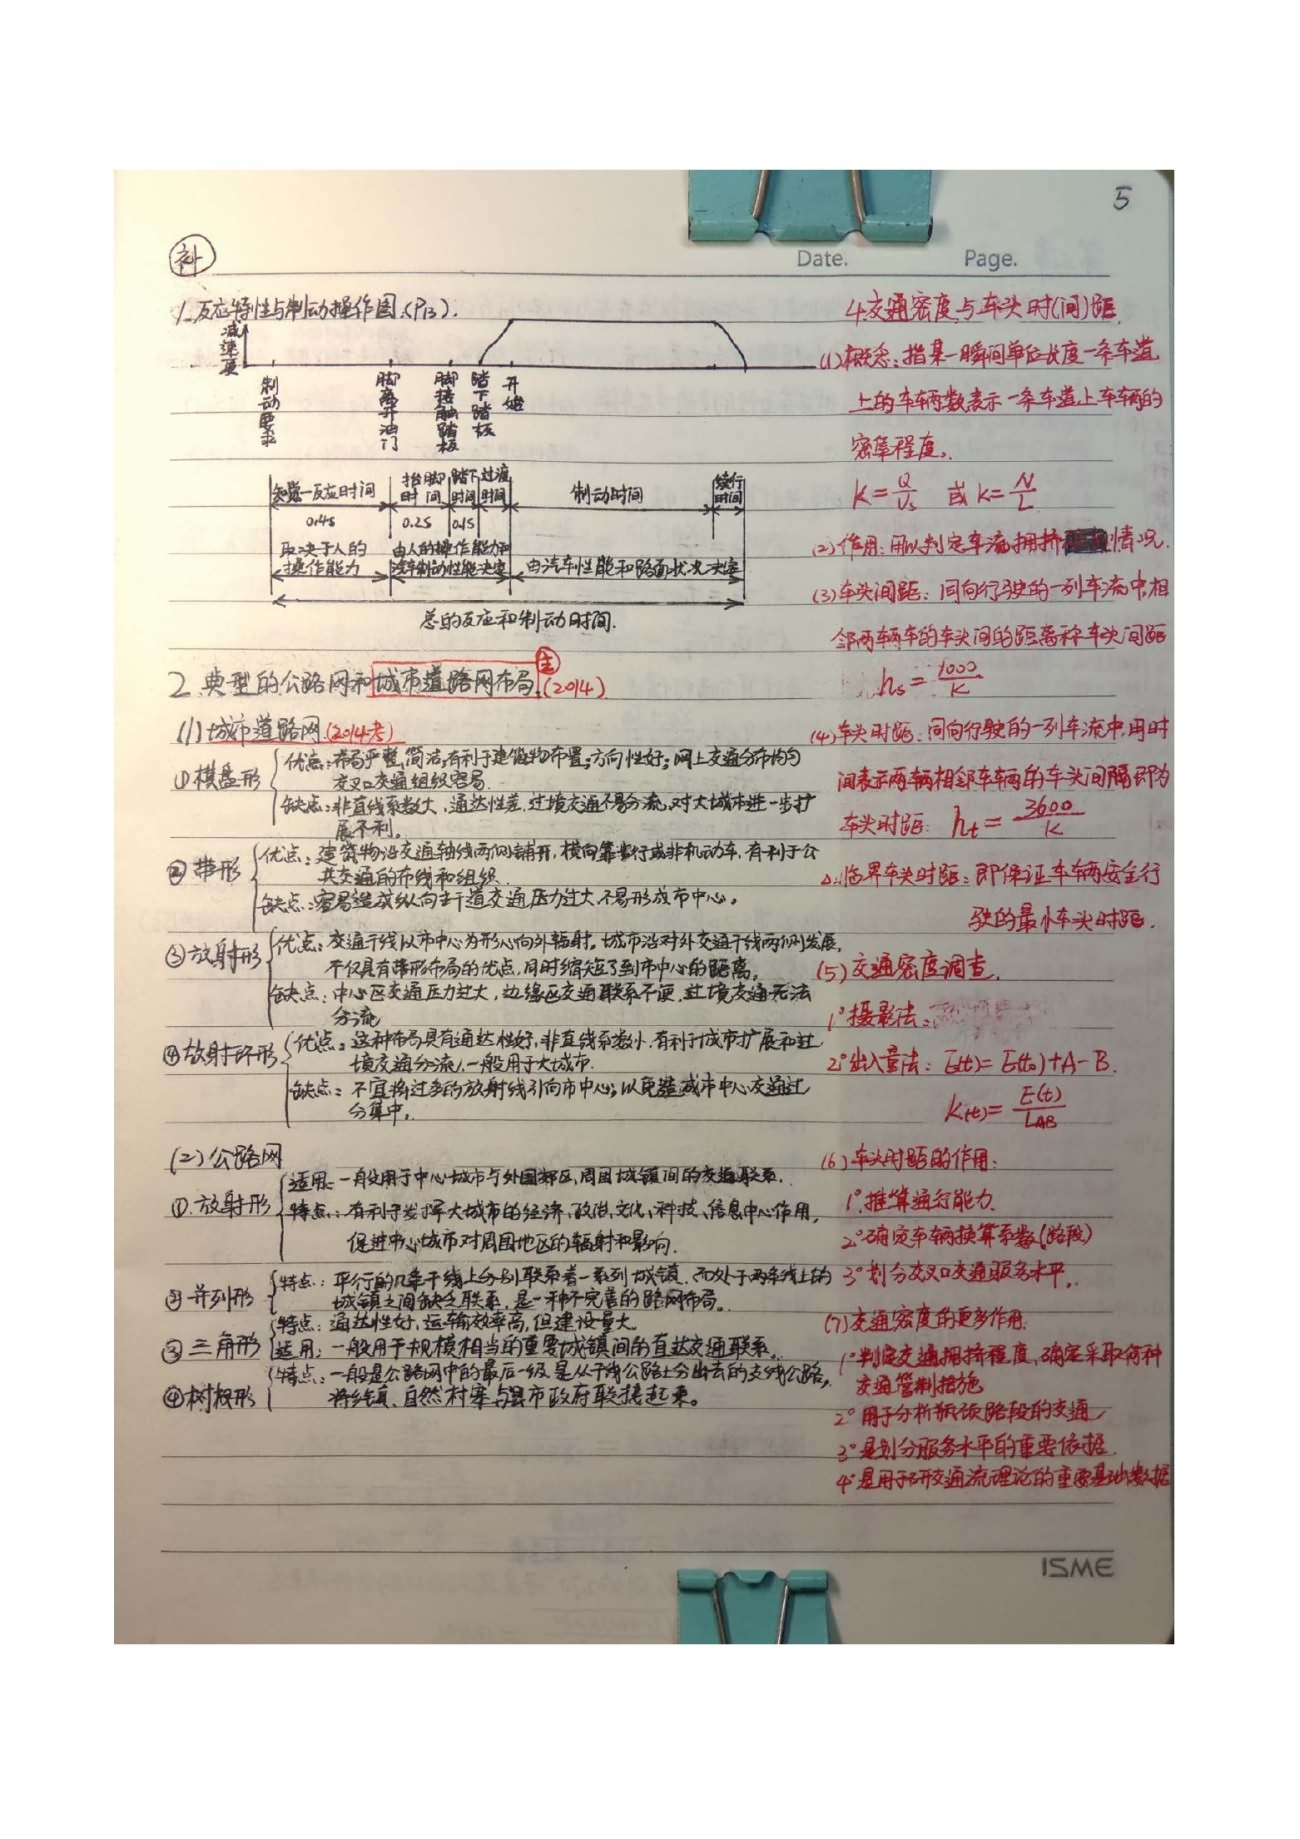 5
补
Date. Page.
1.反应特性与制动操作图.(P13).
减速度
制动要求
脚离开油门
脚接触踏板
踏下踏板
开始
知觉—反应时间
抬脚时间
踏下时间
过渡时间
制动时间
续行时间
0.4s 0.2s 0.1s
取决于人的操作能力
由人的操作能力和汽车制动性能决定
由汽车性能和路面状况决定
总的反应和制动时间.
2.典型的公路网和城市道路网布局.(2014)
(1)城市道路网.(2014考)
①棋盘形
优点:布局严整,简洁;有利于建筑物布置;方向性好;网上交通分布均匀
交叉口交通组织容易.
缺点:非直线系数大,通达性差,过境交通不易分流,对大城市进一步扩
展不利。
②带形
优点:建筑物沿交通轴线两侧铺开,横向靠步行或非机动车,有利于公
共交通的布线和组织.
缺点:容易造成纵向主干道交通压力过大,不易形成市中心。
③放射形
优点:交通干线以市中心为形心向外辐射。城市沿对外交通干线两侧发展,
不仅具有带形布局的优点,同时缩短了到市中心的距离。
缺点:中心区交通压力过大,边缘区交通联系不便,过境交通无法
分流
④放射环形
优点:这种布局具有通达性好,非直线系数小,有利于城市扩展和过
境交通分流,一般用于大城市.
缺点:不宜将过多的放射线引向市中心,以免造成市中心交通过
分集中。
(2)公路网
①.放射形
适用:一般用于中心城市与外围郊区,周围城镇间的交通联系.
特点:有利于发挥大城市的经济、政治、文化、科技、信息中心作用,
促进中心城市对周围地区的辐射和影响.
②并列形
特点:平行的几条干线上分别联系着一系列城镇,而处于两条线上的
城镇之间缺乏联系,是一种不完善的路网布局。
③三角形
特点:通达性好,运输效率高,但建设量大
适用:一般用于规模相当的重要城镇间的直达交通联系。
④树权形
特点:一般是公路网中的最后一级,是从干线公路上分出去的支线公路,
将乡镇、自然村寨与县市政府联接起来。
4.交通密度与车头时(间)距.
(1)概念:指某一瞬间单位长度一条车道
上的车辆数表示一条车道上车辆的
密集程度.
K=Q/Us 或 K=N/L
(2)作用:用以判定车流拥挤情况.
(3)车头间距:同向行驶的一列车流中,相
邻两辆车的车头间的距离称车头间距
hs=1000/K
(4)车头时距:同向行驶的一列车流中,用时
间表示两辆相邻车辆的车头间隔即为
车头时距: ht=3600/K
△:临界车头时距:即保证车辆安全行
驶的最小车头时距.
(5)交通密度调查.
1°摄影法:
2°出入量法: E(t)=E(t₀)+A-B.
K(t)=E(t)/LAB
(6)车头时距的作用:
1°推算通行能力.
2°确定车辆换算系数(路段)
3°划分交叉口交通服务水平.
(7)交通密度的更多作用:
1°判定交通拥挤程度,确定采取何种
交通管制措施
2°用于分析瓶颈路段的交通
3°是划分服务水平的重要依据.
4°是用于研交通流理论的重要基础数据
ISME